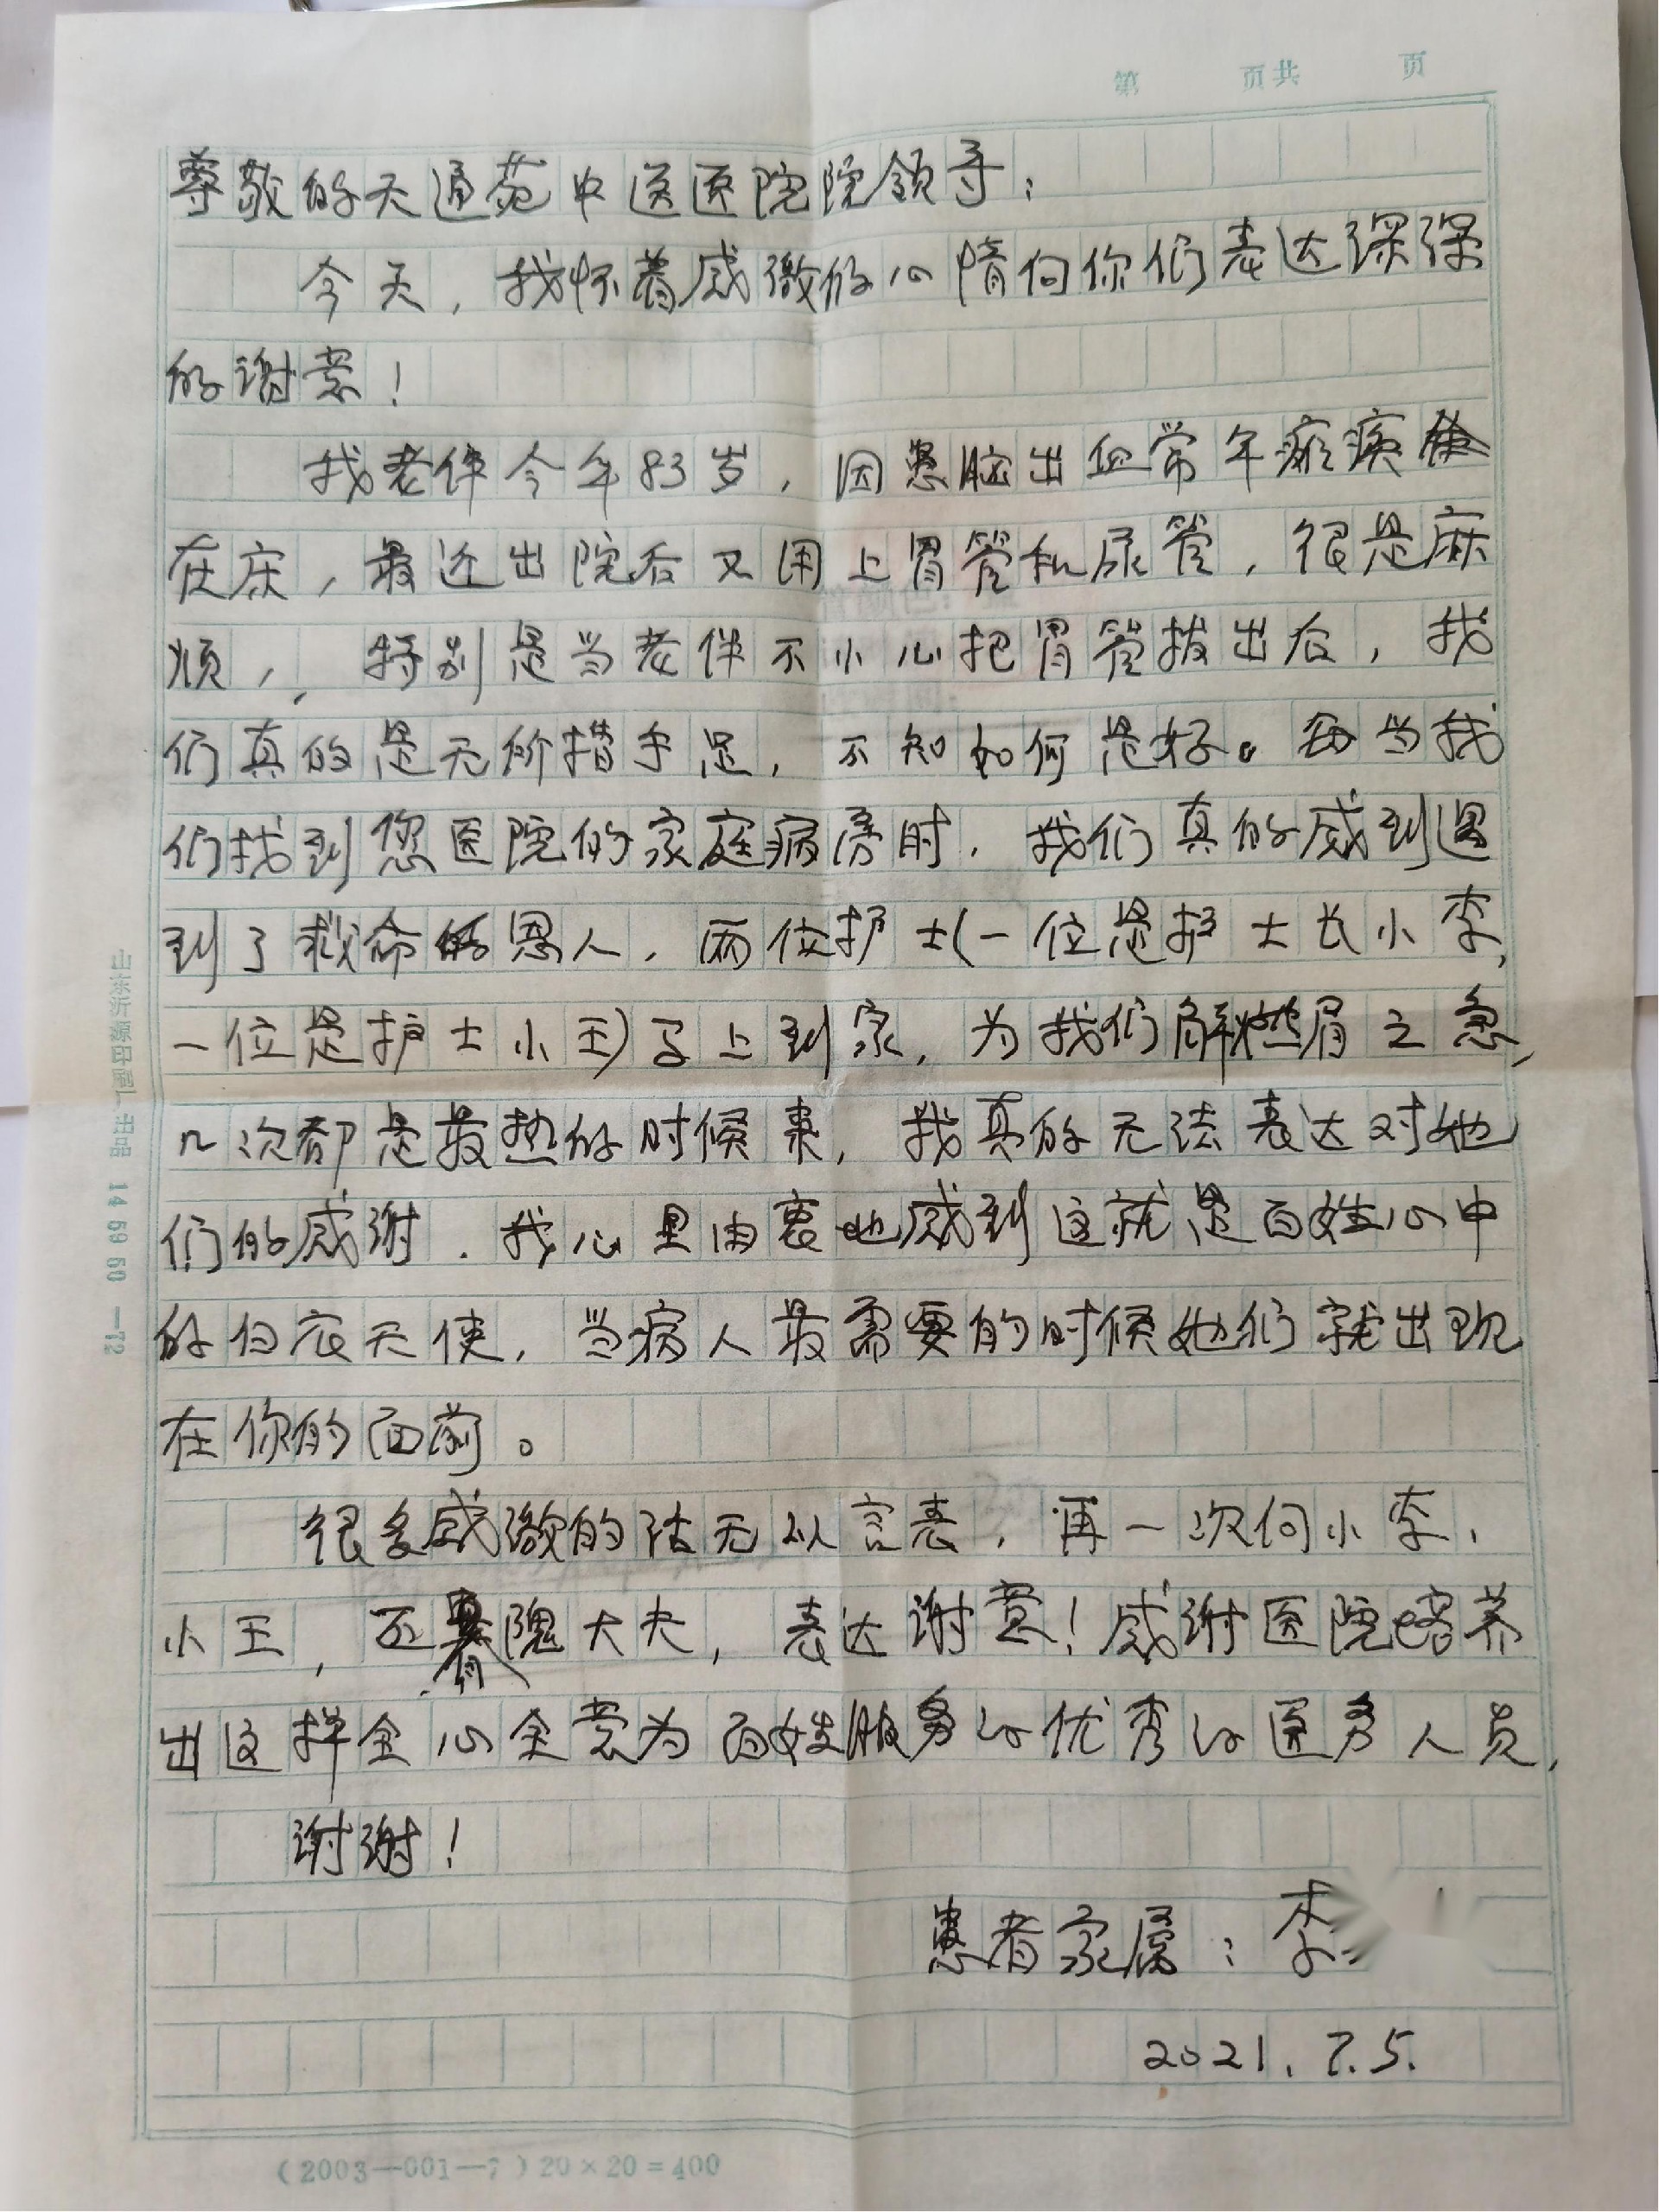 第 页共 页
尊敬的天通苑中医医院院领导：
今天，我怀着感激的心情向你们表达深深
的谢意！
我老伴今年83岁，因患脑出血常年瘫痪
在床，最近出院后又用上胃管和尿管，很是麻
烦，特别是当老伴不小心把胃管拔出后，我
们真的是无所措手足，不知如何是好。每当我
们找到您医院的家庭病房时，我们真的感到遇
到了救命的恩人，两位护士（一位是护士长小李，
一位是护士小王）马上到家，为我们解燃眉之急，
几次都是最热的时候来，我真的无法表达对她
们的感谢．我心里由衷地感到这就是百姓心中
的白衣天使，当病人最需要的时候她们就出现
在你的面前。
很多感激的话无以言表，再一次向小李，
小王，还有隗大夫，表达谢意！感谢医院培养
出这样全心全意为百姓服务的优秀的医务人员，
谢谢！
患者家属：李
2021.7.5.
(2003—001—7) 20×20=400